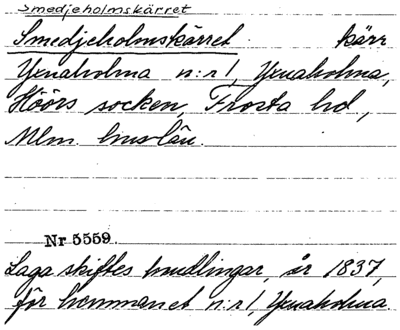 Smedjeholmskärret
Smedjeholmskärret kärr
Yxnaholma n:r 1, Yxnaholma,
Höörs socken, Frosta hd,
Mlm. huslän.
Nr 5559.
Laga skiftes handlingar, år 1837,
för hemmanet n:r 1, Yxnaholma.